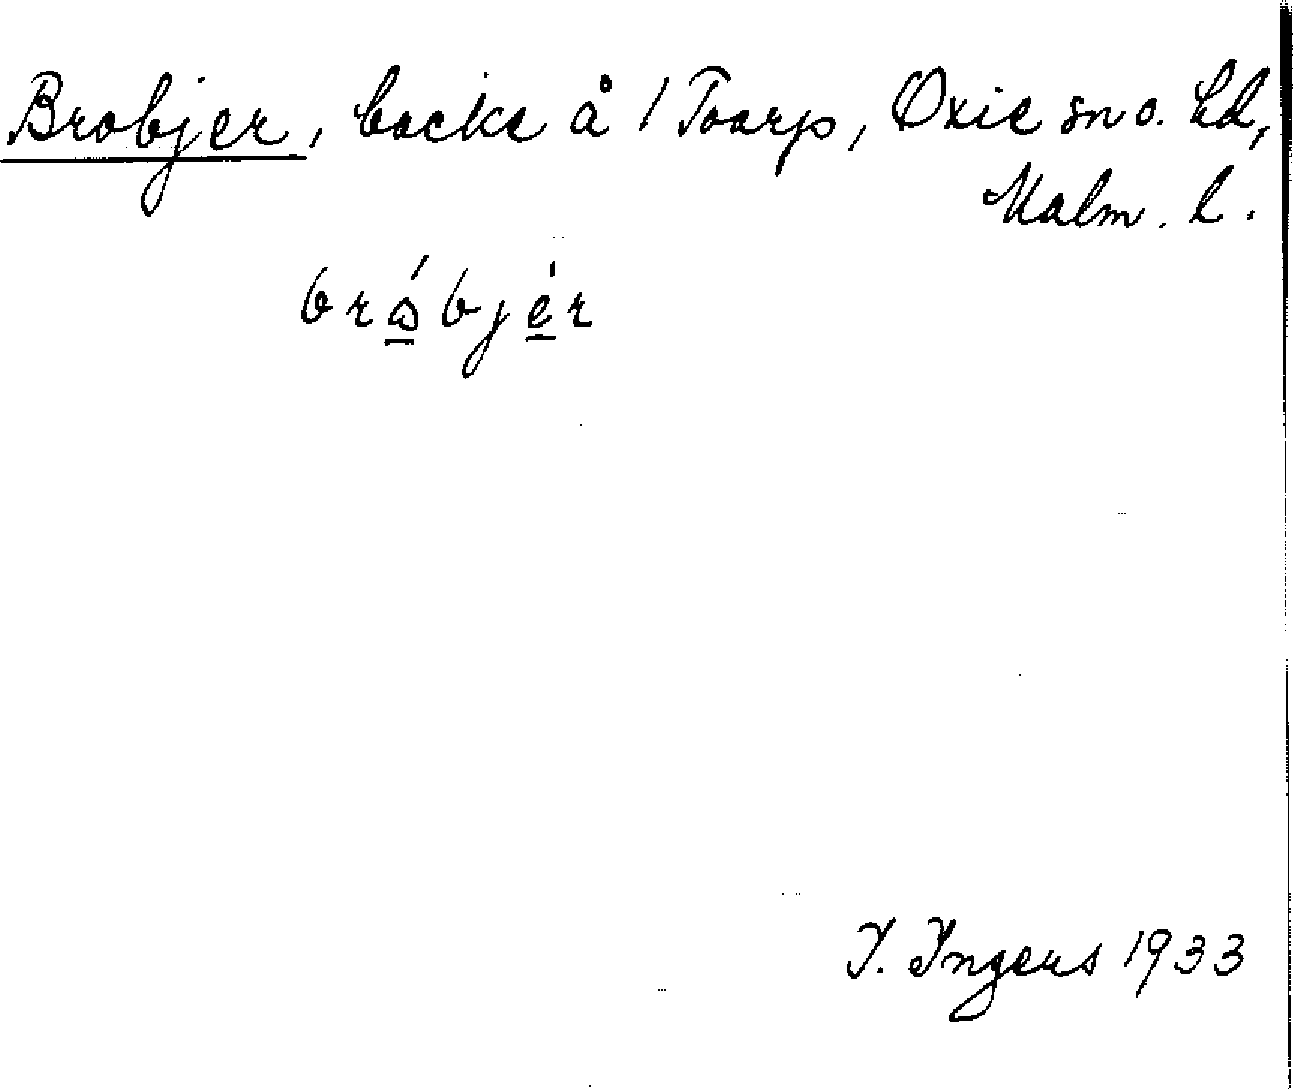 Brobjer, backe å 1 Toarp, Oxie sn o. hd,
Malm. l.
bróbjér
I. Ingers 1933